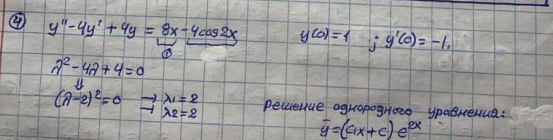 ④ y'' - 4y' + 4y = 8x - 4cos2x    y(0) = 1 ; y'(0) = -1.
①
λ² - 4λ + 4 = 0
⇓
(λ-2)² = 0 → λ1 = 2
→ λ2 = 2
решение однородного уравнения:
ȳ = (C1x + C) e^{2x}